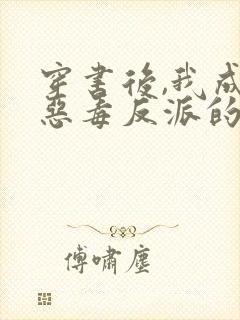 穿書後,我成
惡毒反派的
傅嘯塵